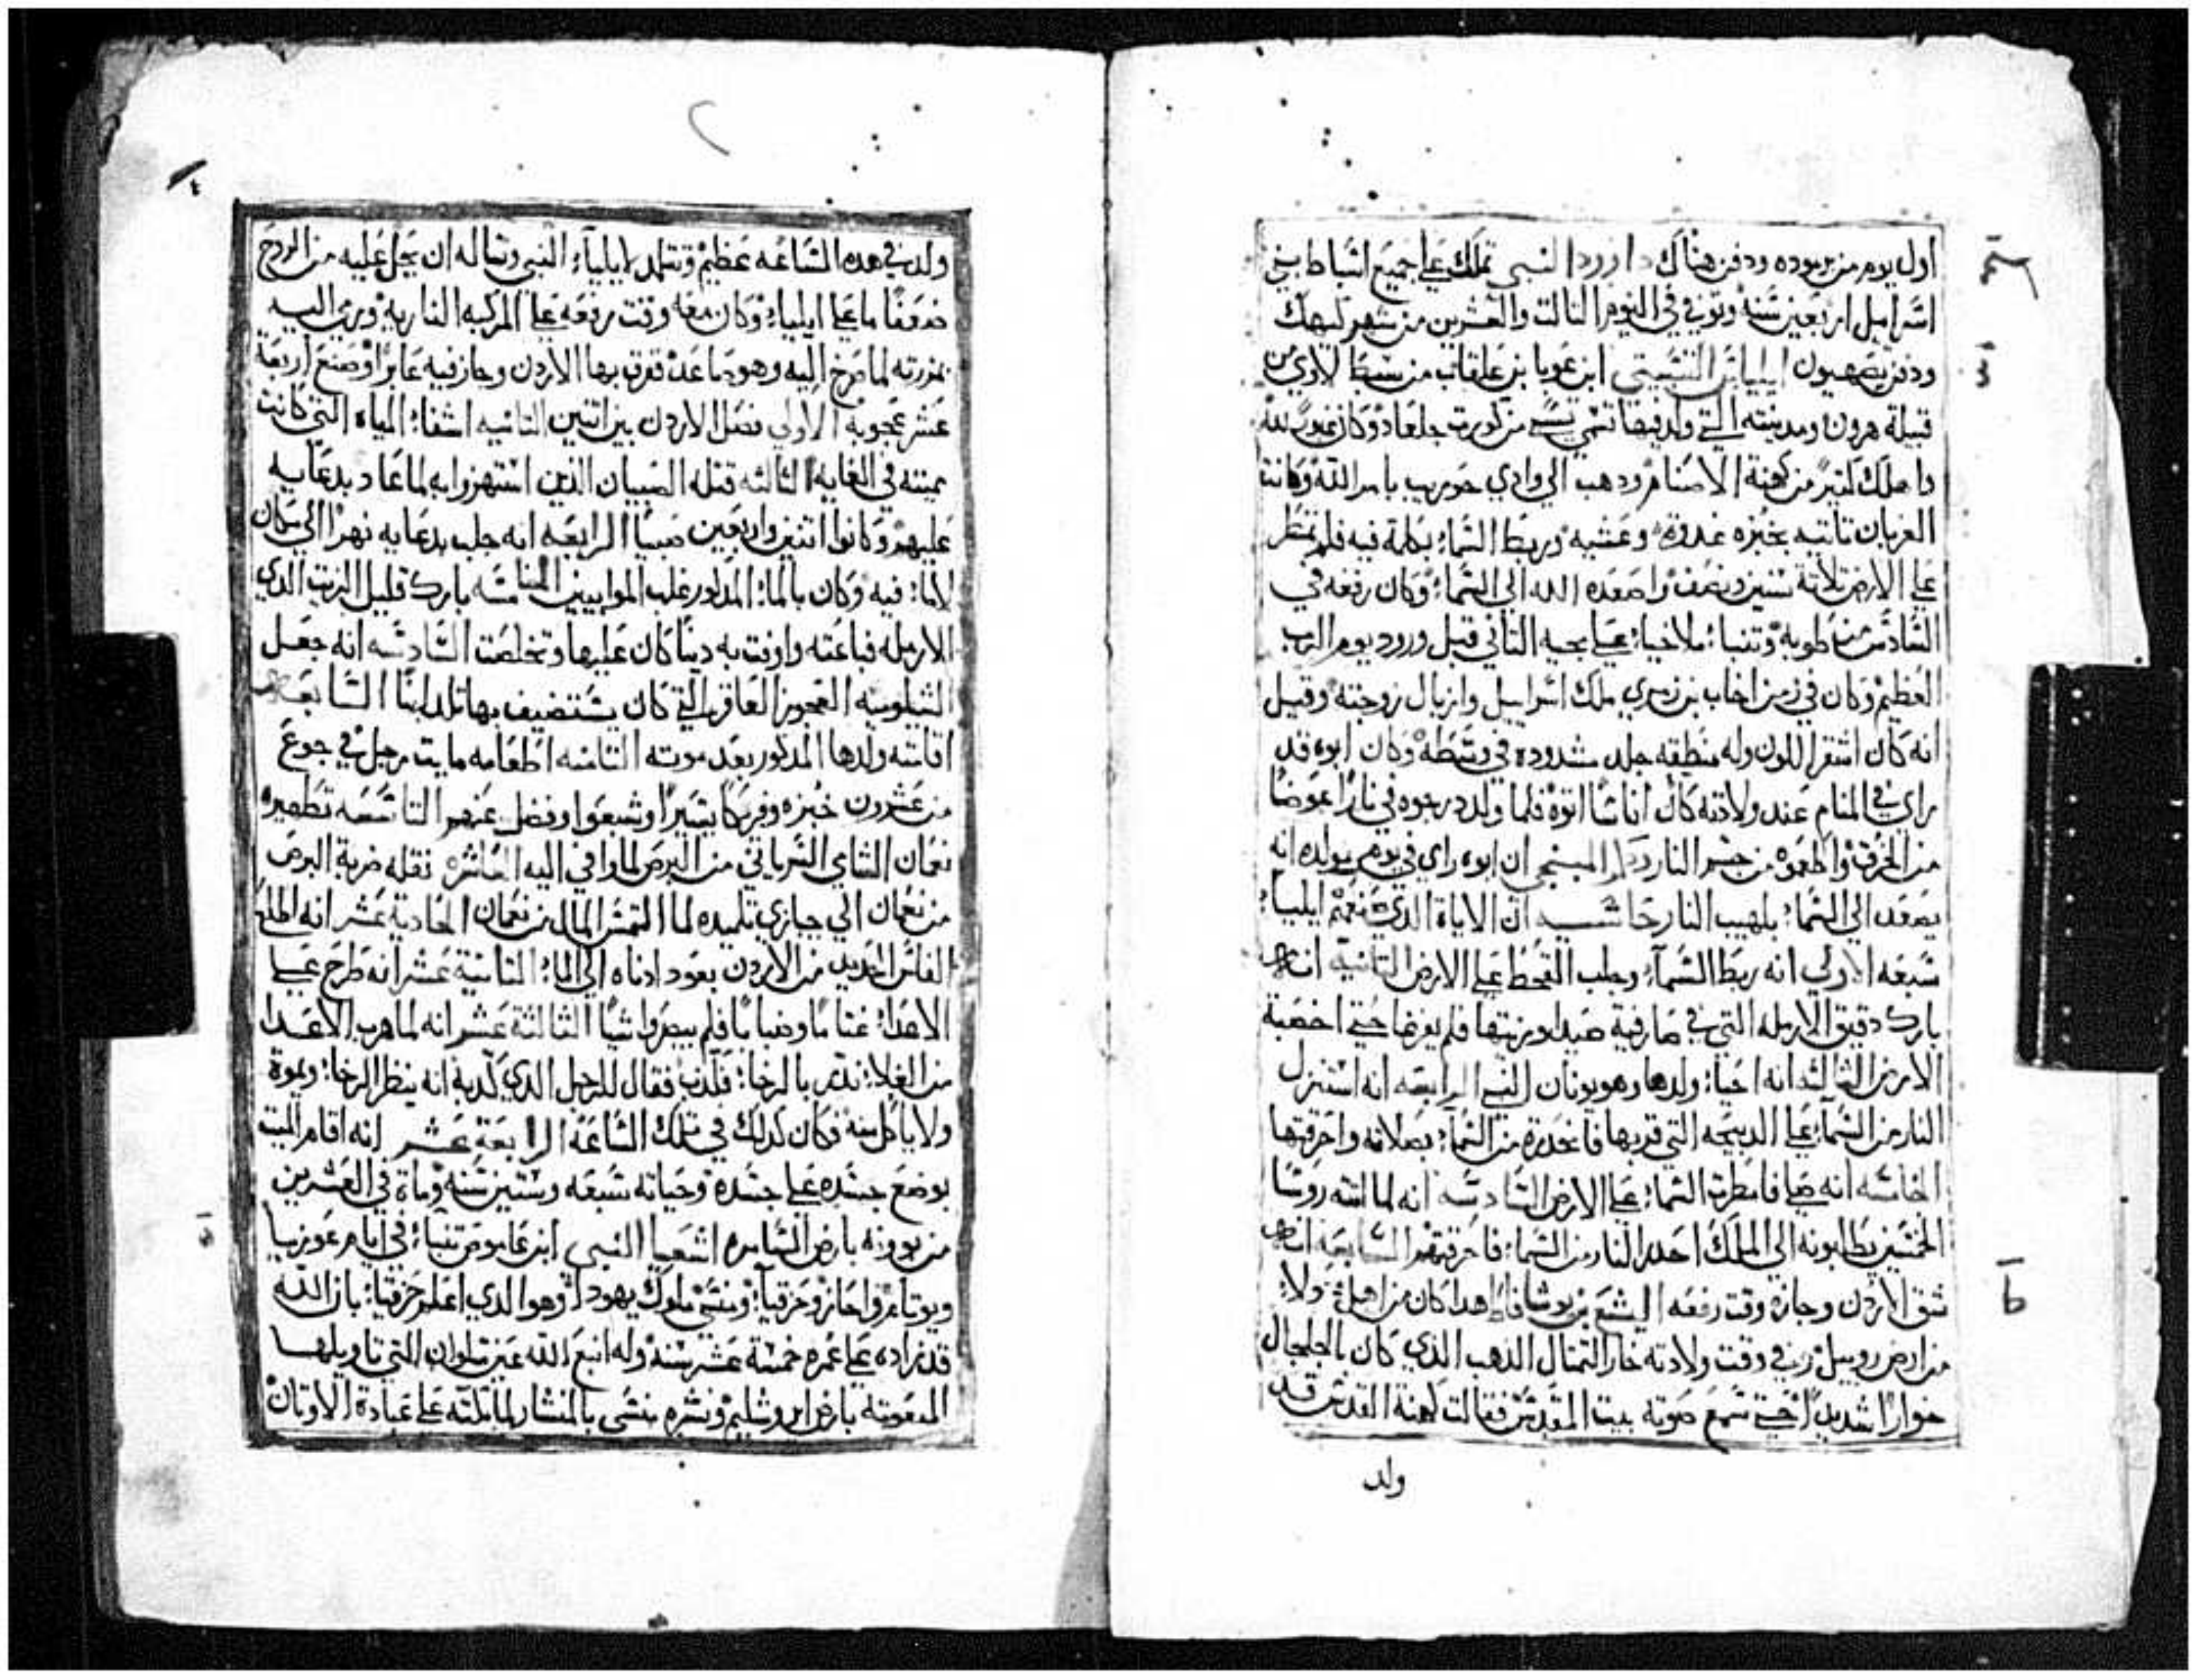 أول يوم من برموده ودفن هناك داوود النبي تملك علي جميع اسباط بني
اسراييل اربعين سنه وتوفي في اليوم التالت والعشرين من شهر كيهك
ودفن بصهيون ايلياس التسبيتي ابن عويا بن علقانب من سبط لاوي من
قبيلة هرون ومدينته التي ولد فيها تسمي تسبي من كورت جلعاد وكان غيور لله
واهلك كتير من كهنة الاصنام ودهب الي وادي حوريب بامر الله وكانت
الغربان تاتيه بخبزه غدوة وعشيه وربط السما بكلمة فيه فلم تمطر
علي الارض تلاتة سنين ونصف واصعده الله الي السما وكان رفعه في
السادس من طوبه وتنبا ملاخيا علي مجيه التاني قبل ورود يوم الرب
العظيم وكان في زمن اخاب بن زمري ملك اسراييل وازبال زوجته وقيل
انه كان اشقر اللون وله منطقه جلد مشدوده في وسطه وكان ابوه قد
راي في المنام عند ولادته كان اناسا اتوه فلما ولد درجوه في نارا عوضا
من الخرق واطعموه من جمر النار دكر المسبحي ان ابوه راي في يوم مولده انه
يصعد الي السما بلهيب النار حاشيه ان الاياة الدي صنعهم ايلياء
سبعه الاولي انه ربط السماء وجلب القحط علي الارض التانيه انه
بارك دقيق الارمله التي في صارفية صيدا وزيتها فلم يفرغا حتي اخصبة
الارض التالته انه احيا ولدها وهو يونان النبي الرابعه انه استنزل
النار من السماء علي الدبيحه التي قربها فانحدرة من السماء بصلاته واحرقتها
الخامسه انه صلي فامطرت السما علي الارض السادسه انه لما اتته روسا
الخمسين يطلبونه الي الملك احدر النار من السما فاحرقتهم السابعه انه
شق الاردن وجازه وقت رفعه اليشع بن يوشافاط هدا كان من اهل
من ارض روبيل وفي وقت ولادته خار التمتال الدهب الدي كان بالجلجال
خوارا شديدا حتي سمع صوته بيت المقدس فقالت كهنة القدس قد
ولد
ولد في هده الساعه عظيم وتتلمد لايلياء النبي وساله ان يحل عليه من الروح
ضعفا ما علي ايلياء وكان معه وقت رفعه علي المركبه الناريه ورمي اليه
بمزرته لما صرخ اليه وهو صاعد فضرب بها الاردن وجاز فيه عابرا وصنع اربعة
عشر عجوبه الاولي فصل الاردن بين اتنين التانيه اشفاء المياه التي كانت
مميته في الغايه التالته قتله الصبيان الدين استهزوا به لما عاد بدعايه
عليهم وكانوا اتنين واربعين صبيا الرابعه انه جلب بدعايه نهرا الي مكان
لاماء فيه وكان بالماء المدكور غلب الموابيين الخامسه بارك قليل الزيت الدي
الارمله فباعته واوفت به دينا كان عليها وتخلصت السادسه انه جعل
الشيلوميه العجوز العاقر التي كان يستضيف بها تلد ابنا السابعه
اقامته ولدها المدكور بعد موته التامنه اطعامه مايت رجل في جوع
من عشرون خبزه وفريكا يسيرا وشبعوا وفضل عنهم التاسعه تطهيره
نعمان الشامي السرياني من البرص لما وافي اليه العاشره نقله ضربة البرص
من نعمان الي جيازي تلميده لما التمس المال من نعمان الحادية عشر انه اطلع
الفاس الحديد من الاردن بعود ادناه الي الماء التانية عشر انه طرح علي
الاعدا غتاما وضبابا فلم يبصروا شيا التالتة عشر انه لما هرب الاعدا
من الغلاء ندر بالرخاء فكدب فقال للرجل الدي كدبه انه ينظر الرخا ويموة
ولا ياكل منه فكان كدلك في تلك الساعة الرابعة عشر انه اقام الميت
بوضع جسده علي جسده وحياته سبعه وستين سنه وماة في العشرين
من بوونه بارض السامره اشعيا النبي ابن عاموص تنباء في ايام عوزيا
ويوتام واحاز وحزقيا ومنسي ملوك يهودا وهو الدي اعلم حزقيا بان الله
قد زاده علي عمره خمسة عشر سنه وله انبع الله عين سلوان التي تاويلها
المبعوته بارض ايروشليم ونشره منسي بالمنشار لما بكته علي عبادة الاوتان